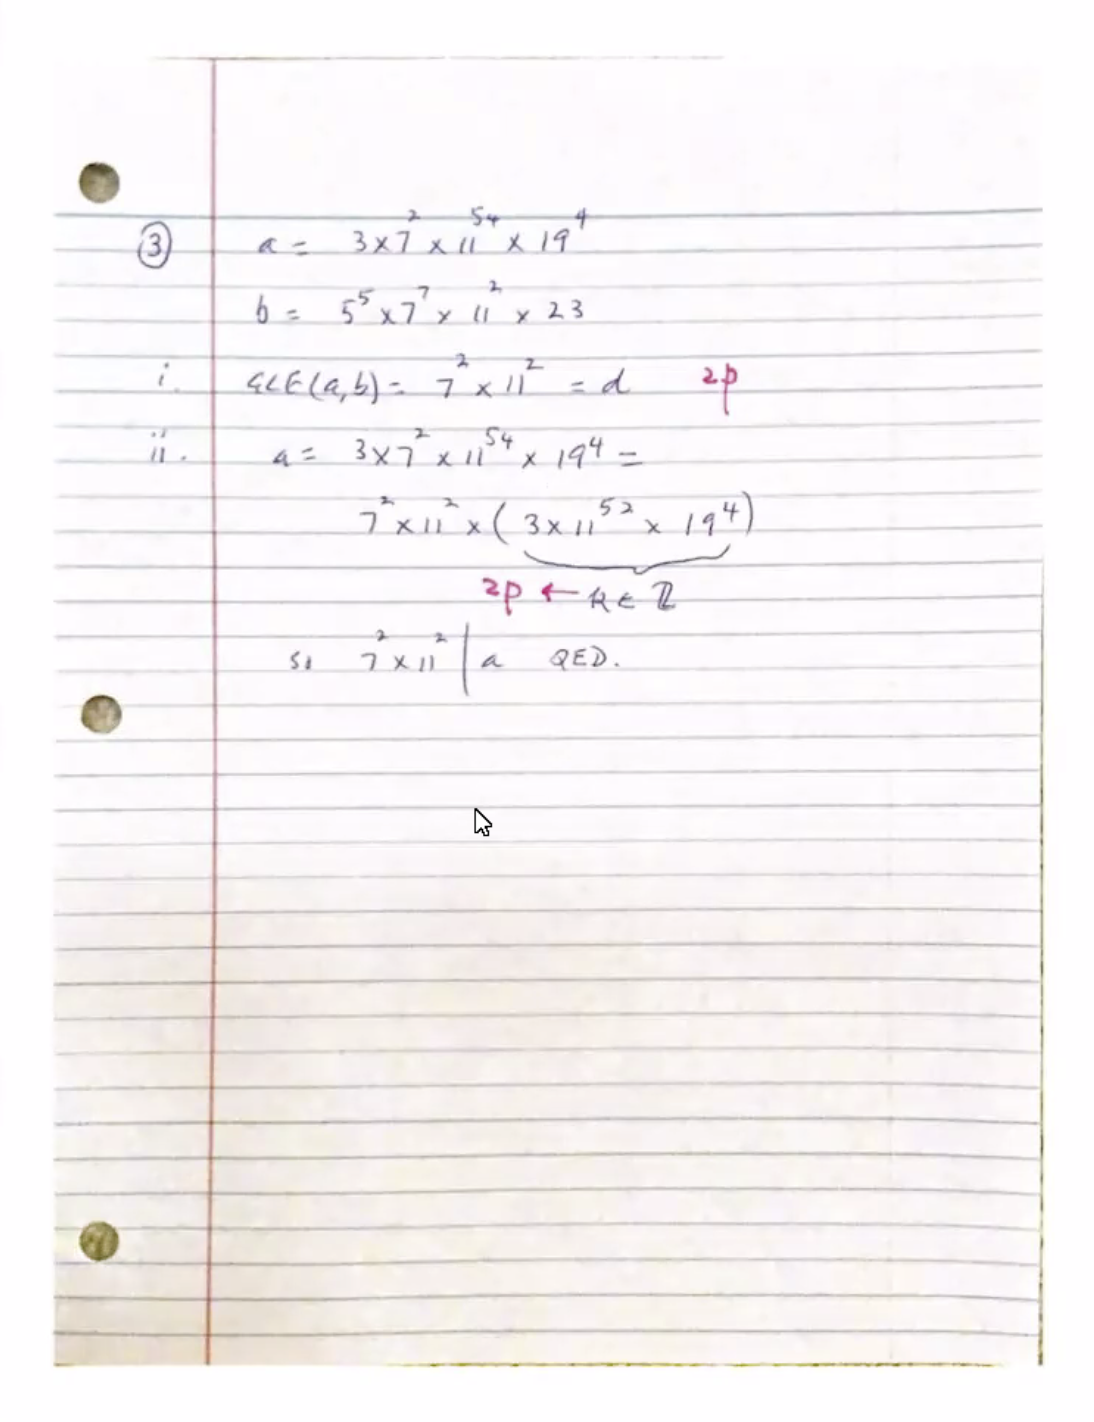 ③ a = 3 × 7² × 11⁵⁴ × 19⁴
b = 5⁵ × 7⁷ × 11² × 23
i. GCF(a,b) = 7² × 11² = d 2p
ii. a = 3 × 7² × 11⁵⁴ × 19⁴ =
7² × 11² × ( 3 × 11⁵² × 19⁴ )
2p ← k ∈ ℤ
so 7² × 11² | a QED.